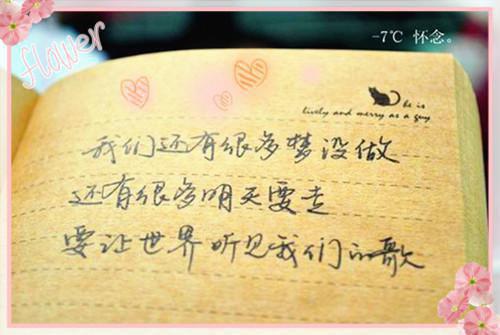 -7℃ 怀念。
flower
he is
lively and merry as a guy
我们还有很多梦没做
还有很多明天要走
要让世界听见我们的歌